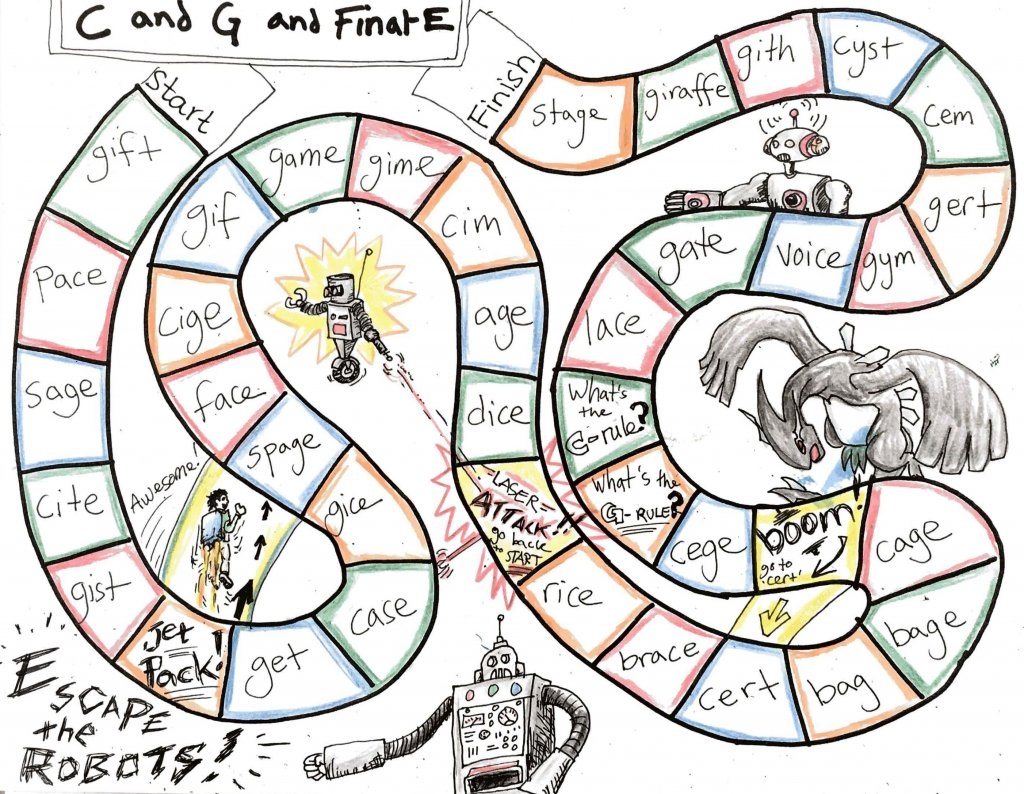 C and G and Final E
Start
gift
Pace
sage
cite
gist
Jet
Pack!
get
case
gice
spage
Awesome!
face
cige
gif
game
gime
cim
age
dice
LASER
ATTACK!!
go back
to START
rice
brace
cert
bag
bage
cage
boom!
go to
'cert'
cege
What's the
G-RULE?
What's
the
C-rule?
lace
gate
voice
gym
gert
cem
cyst
gith
giraffe
stage
Finish
ESCAPE
the
ROBOTS!